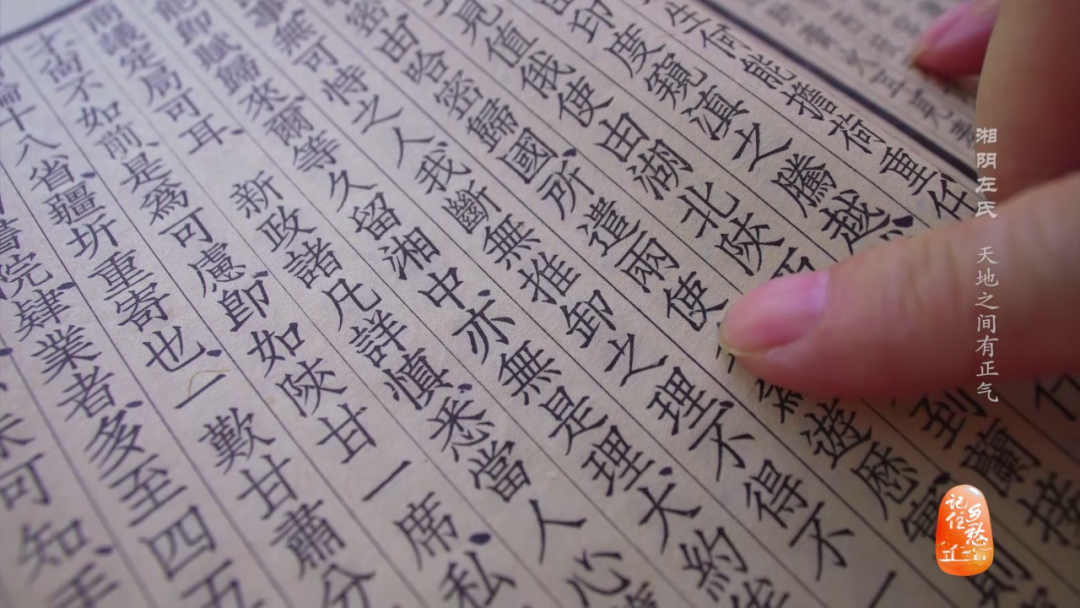 生何能擔荷重任
印度窺滇之騰越、
見值俄使由湖北陝
到蘭接
密由哈密歸國、所遣兩使
遊歷
事無可恃之人、我斷無推卸之理、不得不一
能即賦歸來、爾等久留湘中、亦無是理、大約
商議定局可耳、 新政諸凡詳慎、悉當人心
才尚不如前、是爲可慮、即如陝甘一席、私
十八省、疆圻重寄也、一歎甘肅分
書院肄業者、多至四五
可知、手
湘阴左氏 天地之间有正气
记住乡愁